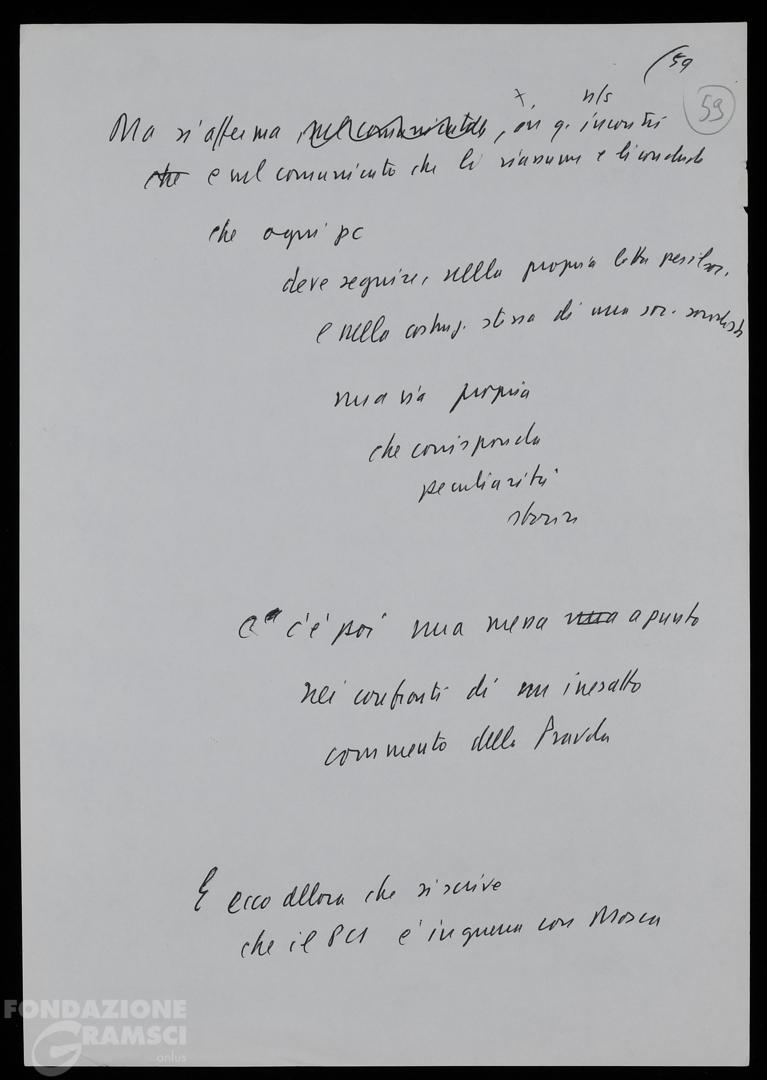 (59
59
+ n/s
Ma si afferma, nel comunicato, in q. incontri
che e nel comunicato che li riassume e li conclude
che ogni pc
deve seguire, nella propria lotta
e nella costruz. stessa di una soc. socialista
una via propria
che corrisponda
peculiarità
storiche
E c'è poi una messa una a punto
nei confronti di un inesatto
commento della Pravda
E ecco allora che si scrive
che il PCI è in guerra con Mosca
FONDAZIONE
GRAMSCI
onlus